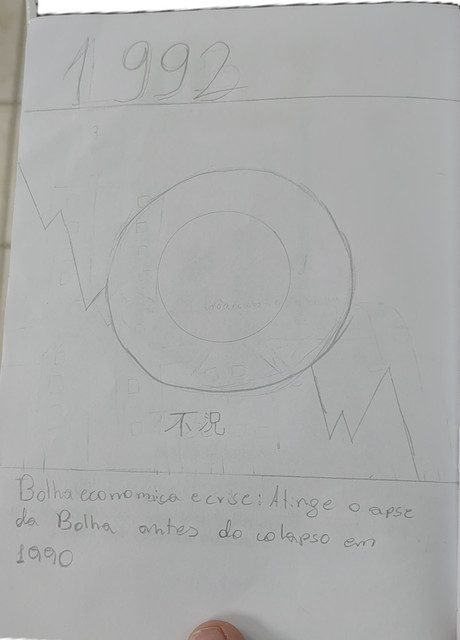 1992
不況
Bolha economica e crise: Atinge o apse
da Bolha antes do colapso em
1990